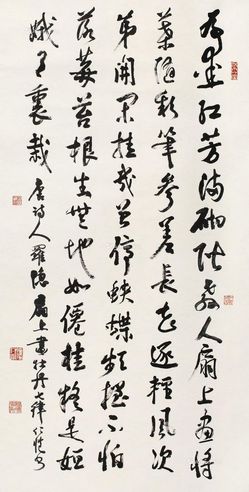 為愛紅芳滿砌階教人扇上畫將
葉隨彩筆參差長花逐輕風次
第開閑挂幾曾停蛺蝶頻搖不怕
落莓苔根生無地如僊桂疑是姮
娥月裏栽 唐詩人羅隱扇上畫牡丹七律仁愷書